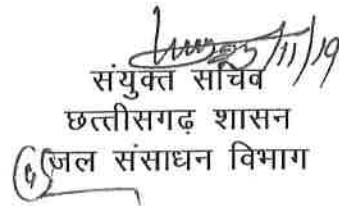 23/11/19
संयुक्त सचिव
छत्तीसगढ़ शासन
जल संसाधन विभाग